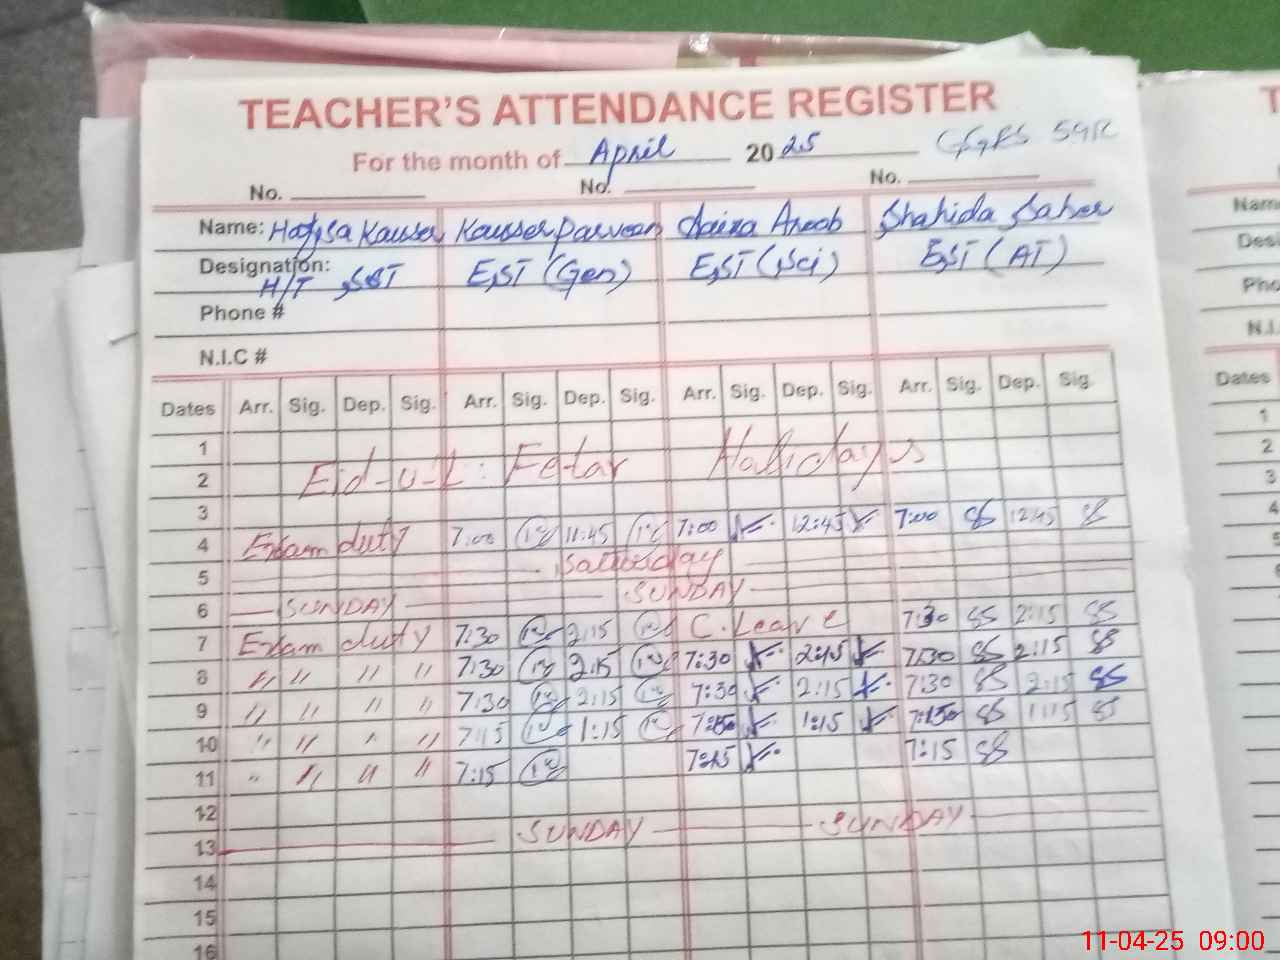 TEACHER'S ATTENDANCE REGISTER
For the month of April 2025
No. No. No.
Name: Hafisa Kauser Kausser Parveen Aneeb Shahida Saher
Designation: H/T SST EST (Gen) EST (Sci) EST (AT)
Phone #
N.I.C #
Dates Arr. Sig. Dep. Sig. Arr. Sig. Dep. Sig. Arr. Sig. Dep. Sig. Arr. Sig. Dep. Sig.
1
2 Eid-ul: Fetar Hallidays
3
4 Exam duty 7:00 11:45 7:00 12:45 7:00 SS 12:45 SS
5 Saturday
6 SUNDAY SUNDAY
7 Exam duty 7:30 2:15 C. Leave 7:30 SS 2:15 SS
8 〃 〃 〃 〃 7:30 2:15 7:30 2:15 7:30 SS 2:15 SS
9 〃 〃 〃 〃 7:30 2:15 7:30 2:15 7:30 SS 2:15 SS
10 〃 〃 〃 〃 7:15 1:15 1:15 SS 1:15 SS
11 〃 〃 〃 〃 7:15 7:15 7:15 SS
12
13 SUNDAY SUNDAY
14
15
16
T
Name
Des
Pho
N.I.
Dates
1
2
3
4
5
11-04-25 09:00